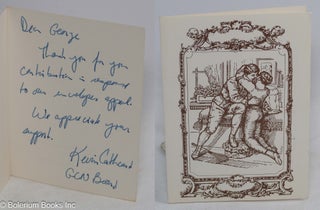 Dear George
Thank you for your
contribution in response
to our envelopes appeal.
We appreciate your
support.
Kevin Cathcart
GCN Board
© Bolerium Books Inc.